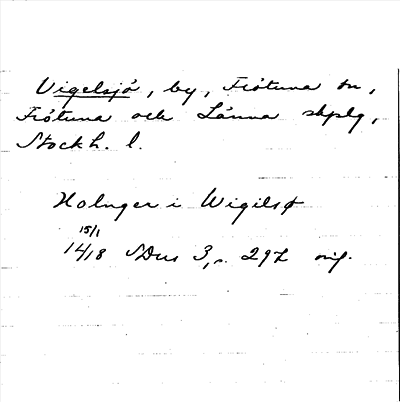 Vigelsjö, by, Frötuna sn,
Frötuna och Länna skplg,
Stockh. l.
Holmger i Wigilsø
15/1
1418 SDns 3, s. 292 orig.